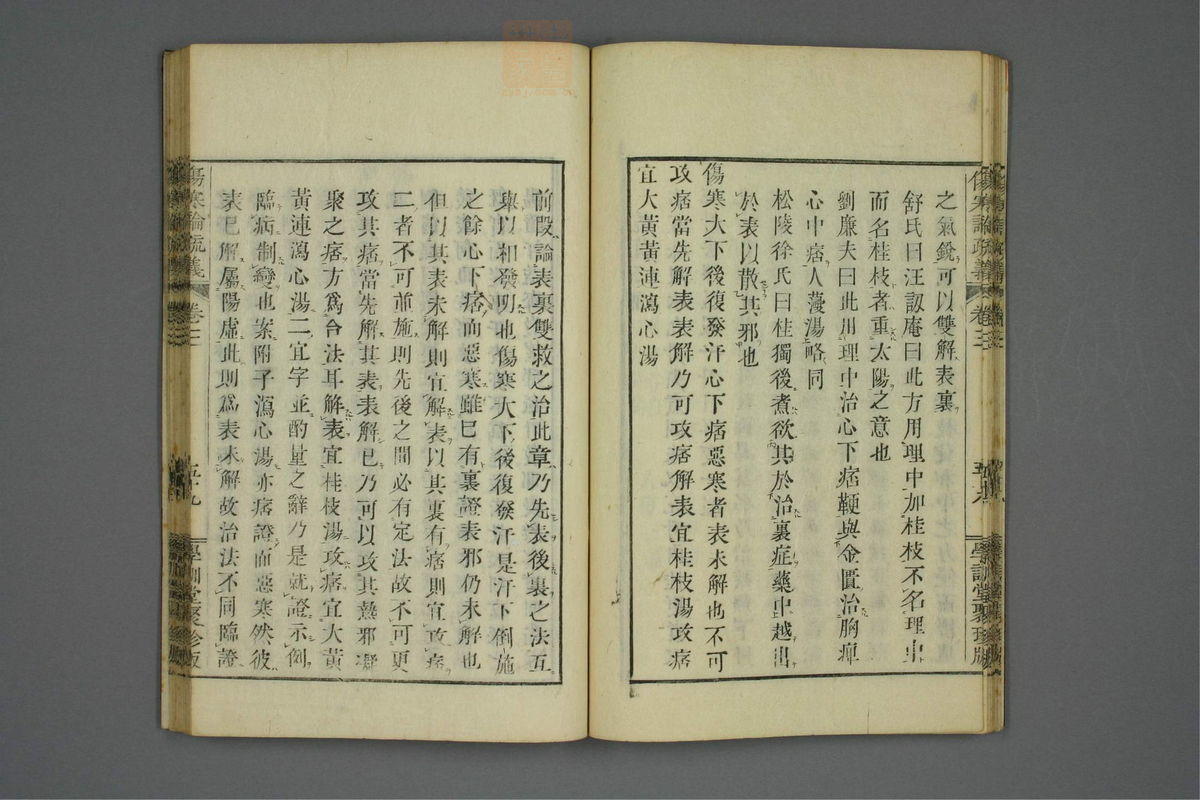 傷寒論疏義
卷三
五十九
學訓堂聚珍版
之氣銳可以雙解表裏
舒氏曰汪訒庵曰此方用理中加桂枝不名理中
而名桂枝者重太陽之意也
劉廉夫曰此用理中治心下痞鞕與金匱治胸痺
心中痞人蔆湯略同
松陵徐氏曰桂獨後煮欲其於治裏症藥中越出
於表以散其邪也
傷寒大下後復發汗心下痞惡寒者表未解也不可
攻痞當先解表表解乃可攻痞解表宜桂枝湯攻痞
宜大黃黃連瀉心湯
前段論表裏雙救之治此章乃先表後裏之法互
舉以相發明也傷寒大下後復發汗是汗下倒施
之餘心下痞而惡寒雖已有裏證表邪仍未解也
但以其表未解則宜解表以其裏有痞則宜攻痞
二者不可並施則先後之間必有定法故不可更
攻其痞當先解其表表解已乃可以攻其熱邪凝
聚之痞方爲合法耳解表宜桂枝湯攻痞宜大黃
黃連瀉心湯二宜字並酌量之辭乃是就證示例
臨病制變也案附子瀉心湯亦痞證而惡寒然彼
表已解屬陽虛此則爲表未解故治法不同臨證
傷寒論疏義
卷三
五十九
學訓堂聚珍版